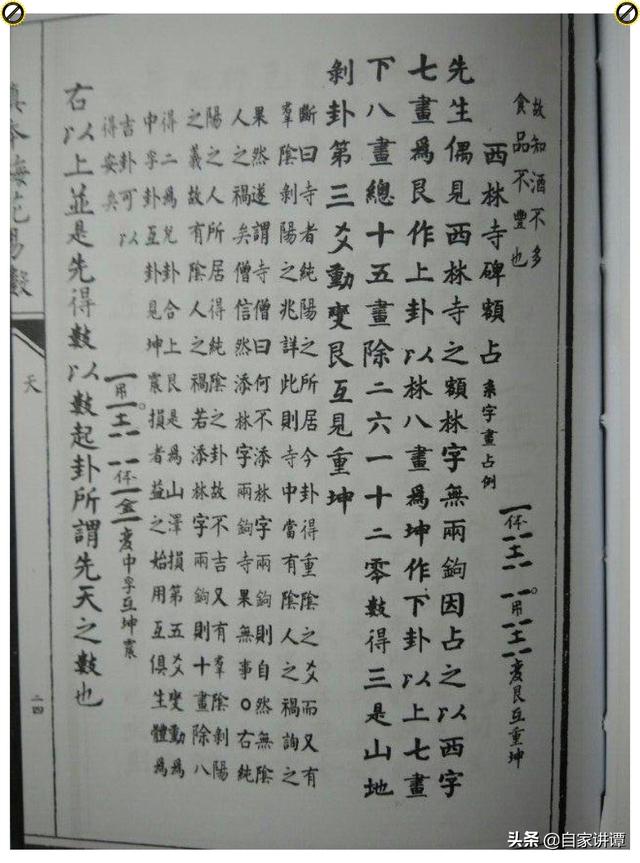 故知酒不多
食品不豐也
西林寺碑額占 系字畫占例
伓土 用土 變艮互重坤
先生偶見西林寺之額林字無兩鉤因占之以西字
七畫爲艮作上卦以林八畫爲坤作下卦以上七畫
下八畫總十五畫除二六一十二零數得三是山地
剝卦第三爻動變艮互見重坤
斷曰寺者純陽之所居今卦得重陰之爻而又有
羣陰剝陽之兆詳此則寺中當有陰人之禍詢之
果然遂謂寺僧曰何不添林字兩鉤則自然無陰
人之禍矣僧信然添林字兩鉤寺果無事○右純
陽之人所居得純陰之卦故不吉又有羣陰剝陽
之義故有陰人之禍若添林字兩鉤則十畫除八
得二爲兌卦合上艮是爲山澤損第五爻變動爲
中孚卦互卦見坤震損者益之始用互俱生體爲
吉卦可以
得安矣
用土 伓金 變中孚互坤震
右以上並是先得數以數起卦所謂先天之數也
天
二四
真本梅花易數
头条 @自家讲谭